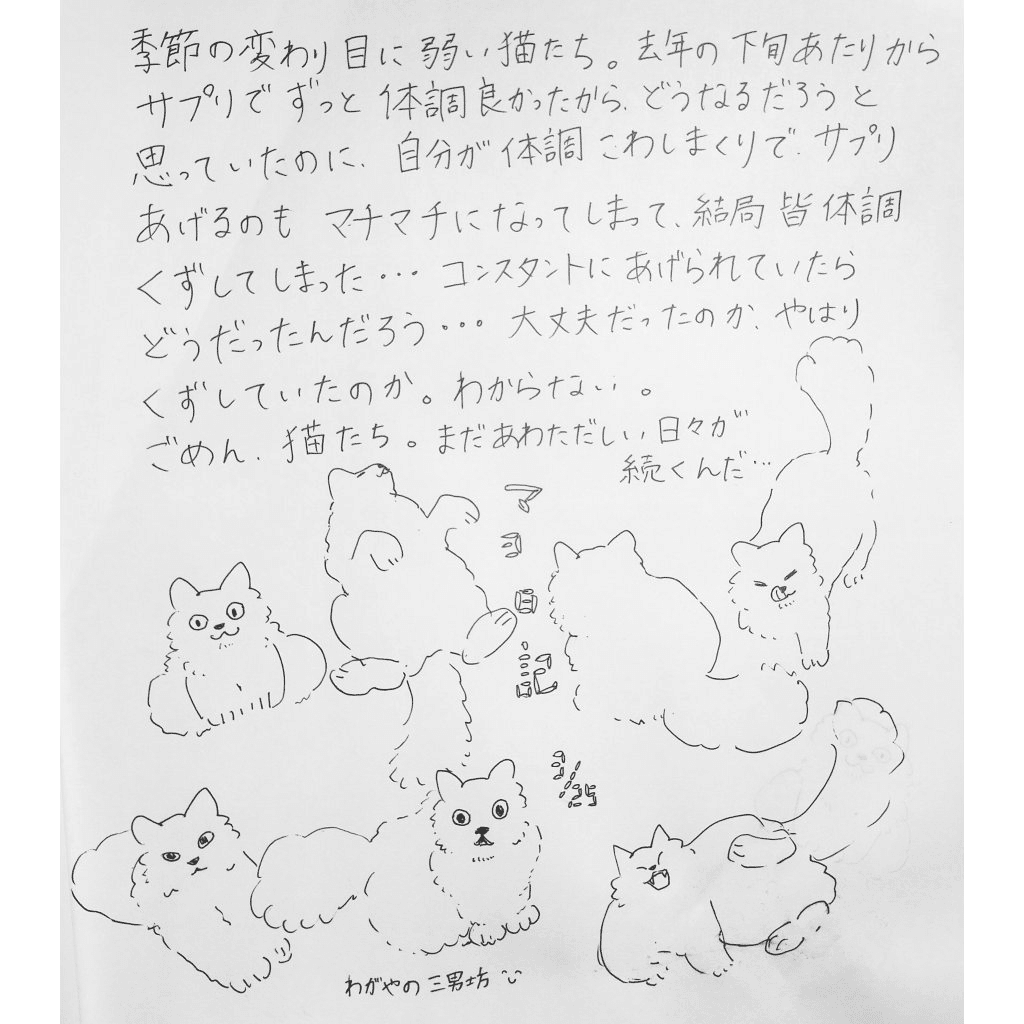 季節の変わり目に弱い猫たち。去年の下旬あたりから
サプリでずっと体調良かったから、どうなるだろうと
思っていたのに、自分が体調こわしまくりで、サプリ
あげるのもマチマチになってしまって、結局皆体調
くずしてしまった・・・コンスタントにあげられていたら
どうだったんだろう・・・大丈夫だったのか、やはり
くずしていたのか。わからない。
ごめん、猫たち。まだあわただしい日々が
続くんだ…
マヨ日記
3/25
わがやの三男坊